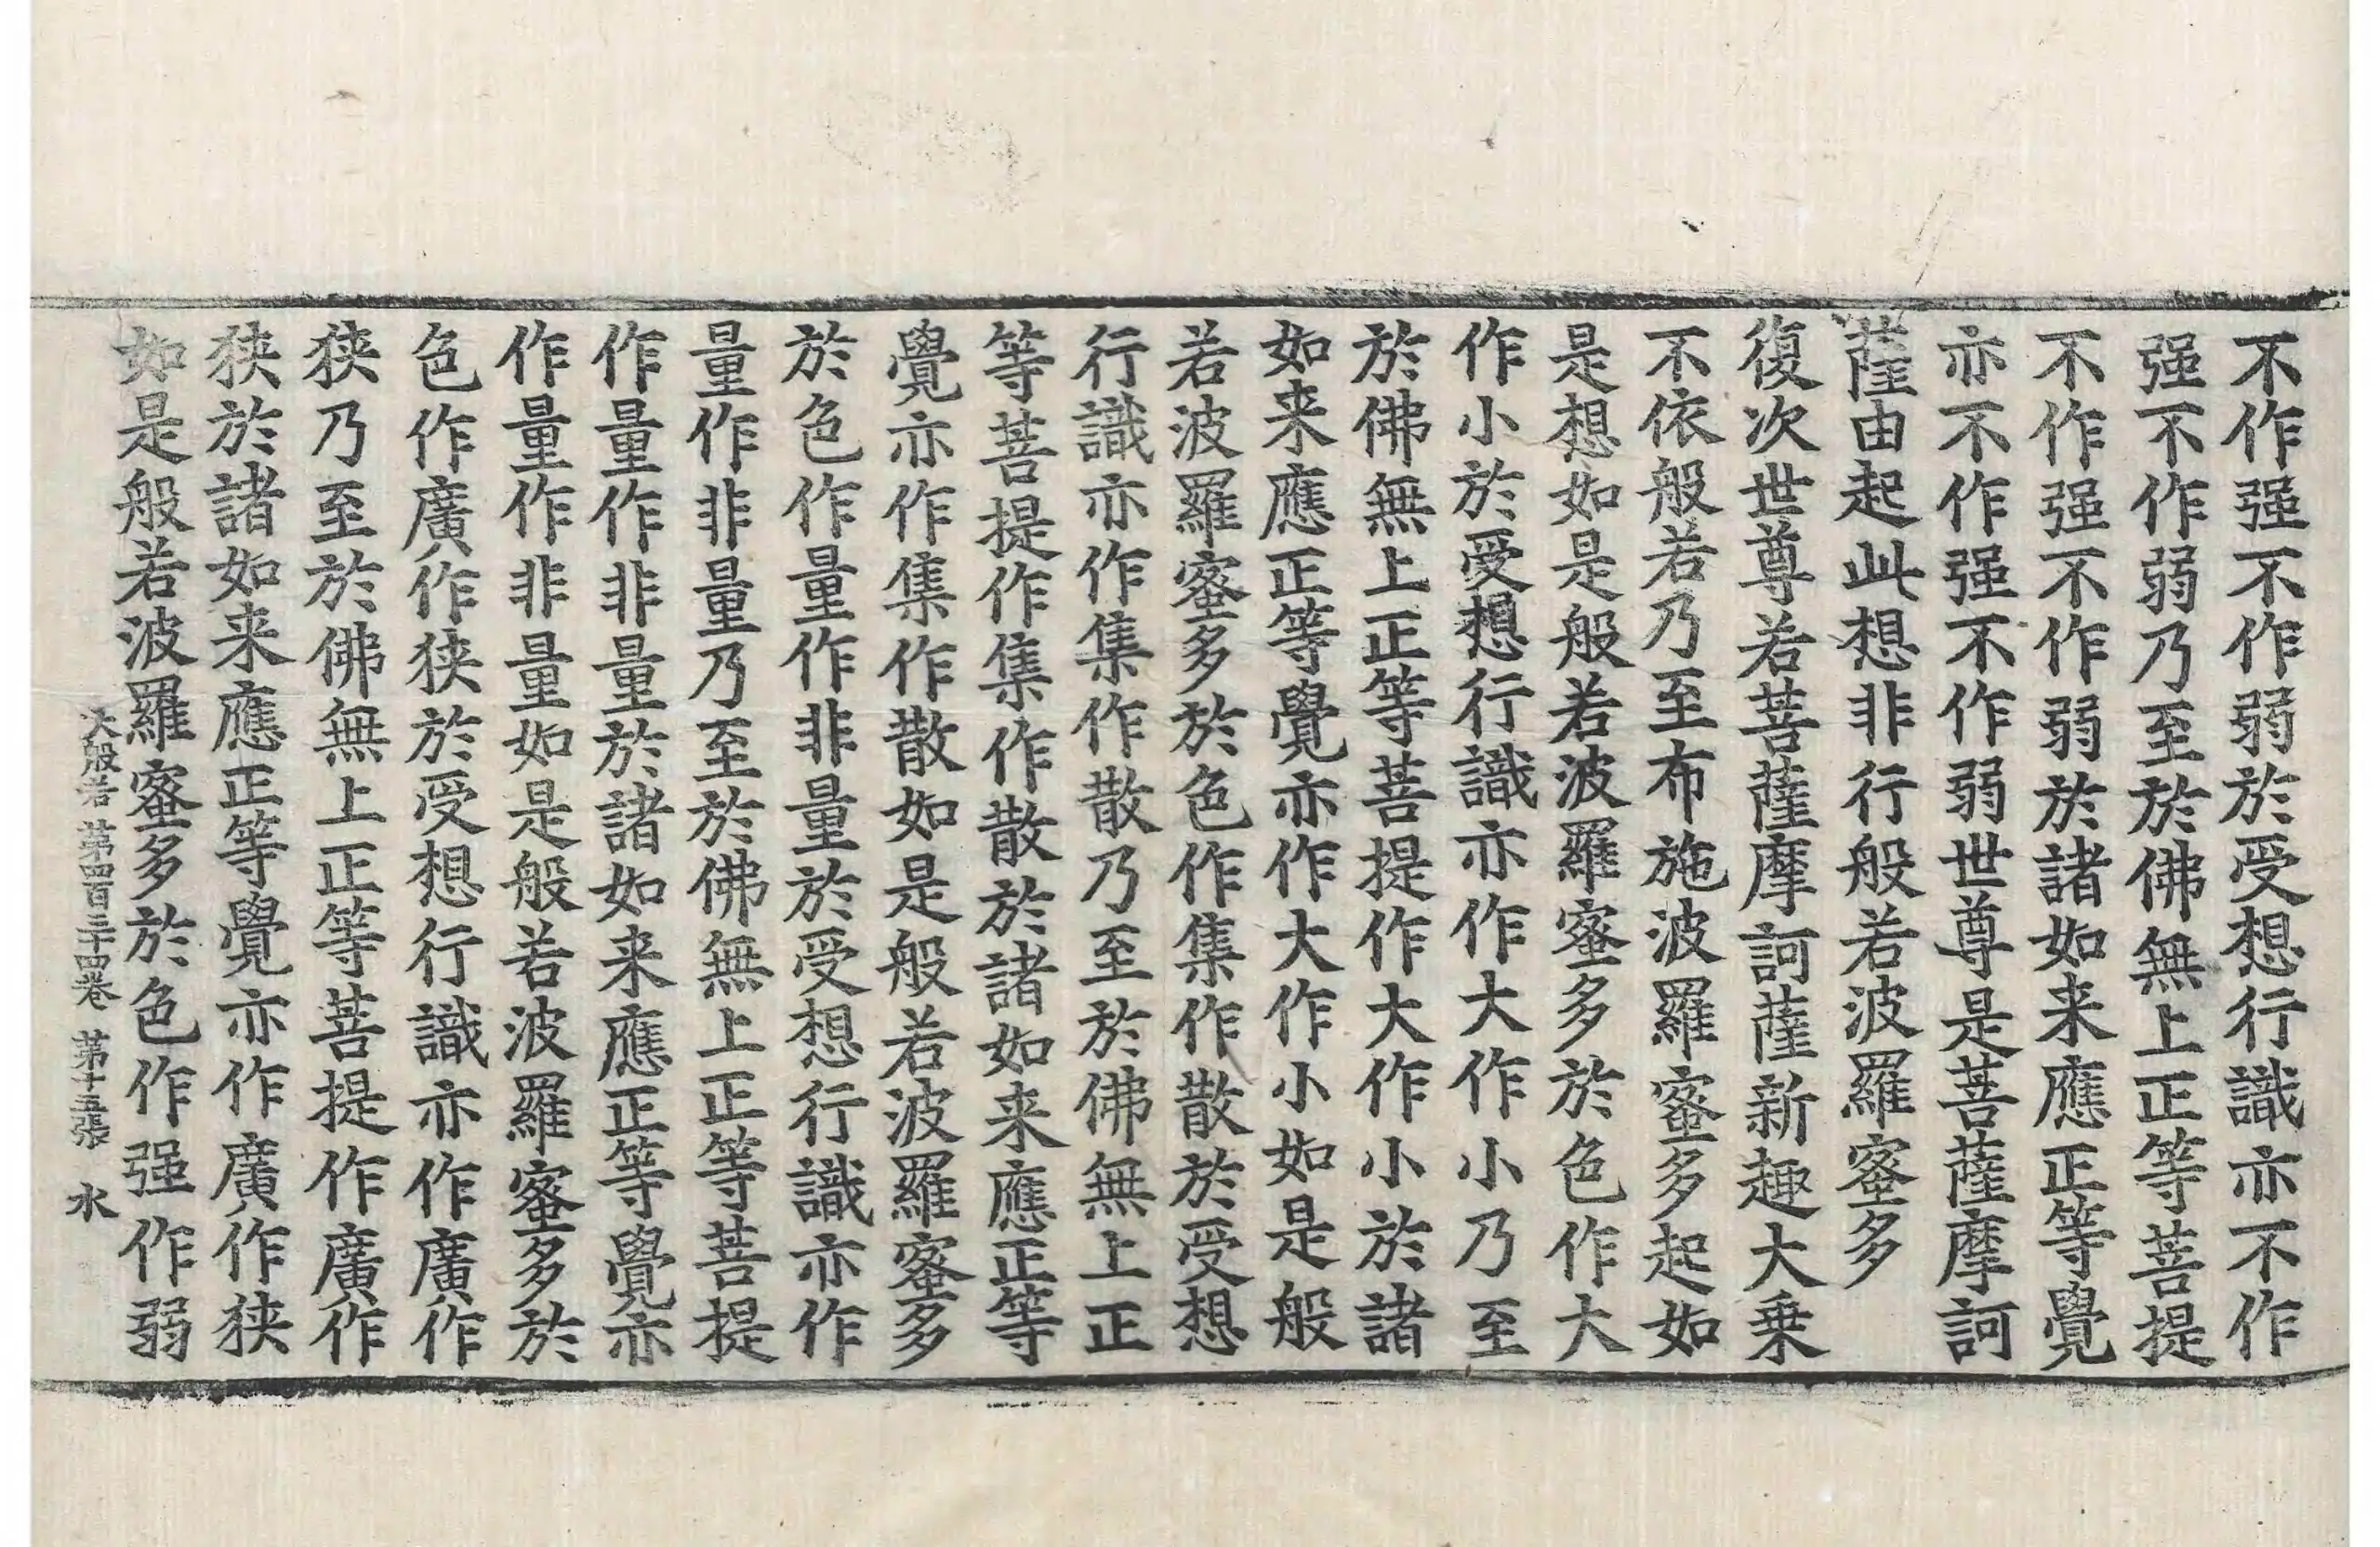 不作强不作弱於受想行識亦不作
强不作弱乃至於佛無上正等菩提
不作强不作弱於諸如来應正等覺
亦不作强不作弱世尊是菩薩摩訶
薩由起此想非行般若波羅蜜多
復次世尊若菩薩摩訶薩新趣大乗
不依般若乃至布施波羅蜜多起如
是想如是般若波羅蜜多於色作大
作小於受想行識亦作大作小乃至
於佛無上正等菩提作大作小於諸
如来應正等覺亦作大作小如是般
若波羅蜜多於色作集作散於受想
行識亦作集作散乃至於佛無上正
等菩提作集作散於諸如来應正等
覺亦作集作散如是般若波羅蜜多
於色作量作非量於受想行識亦作
量作非量乃至於佛無上正等菩提
作量作非量於諸如来應正等覺亦
作量作非量如是般若波羅蜜多於
色作廣作狭於受想行識亦作廣作
狭乃至於佛無上正等菩提作廣作
狭於諸如来應正等覺亦作廣作狭
如是般若波羅蜜多於色作强作弱
大般若 第四百三十四卷 第十五張 水